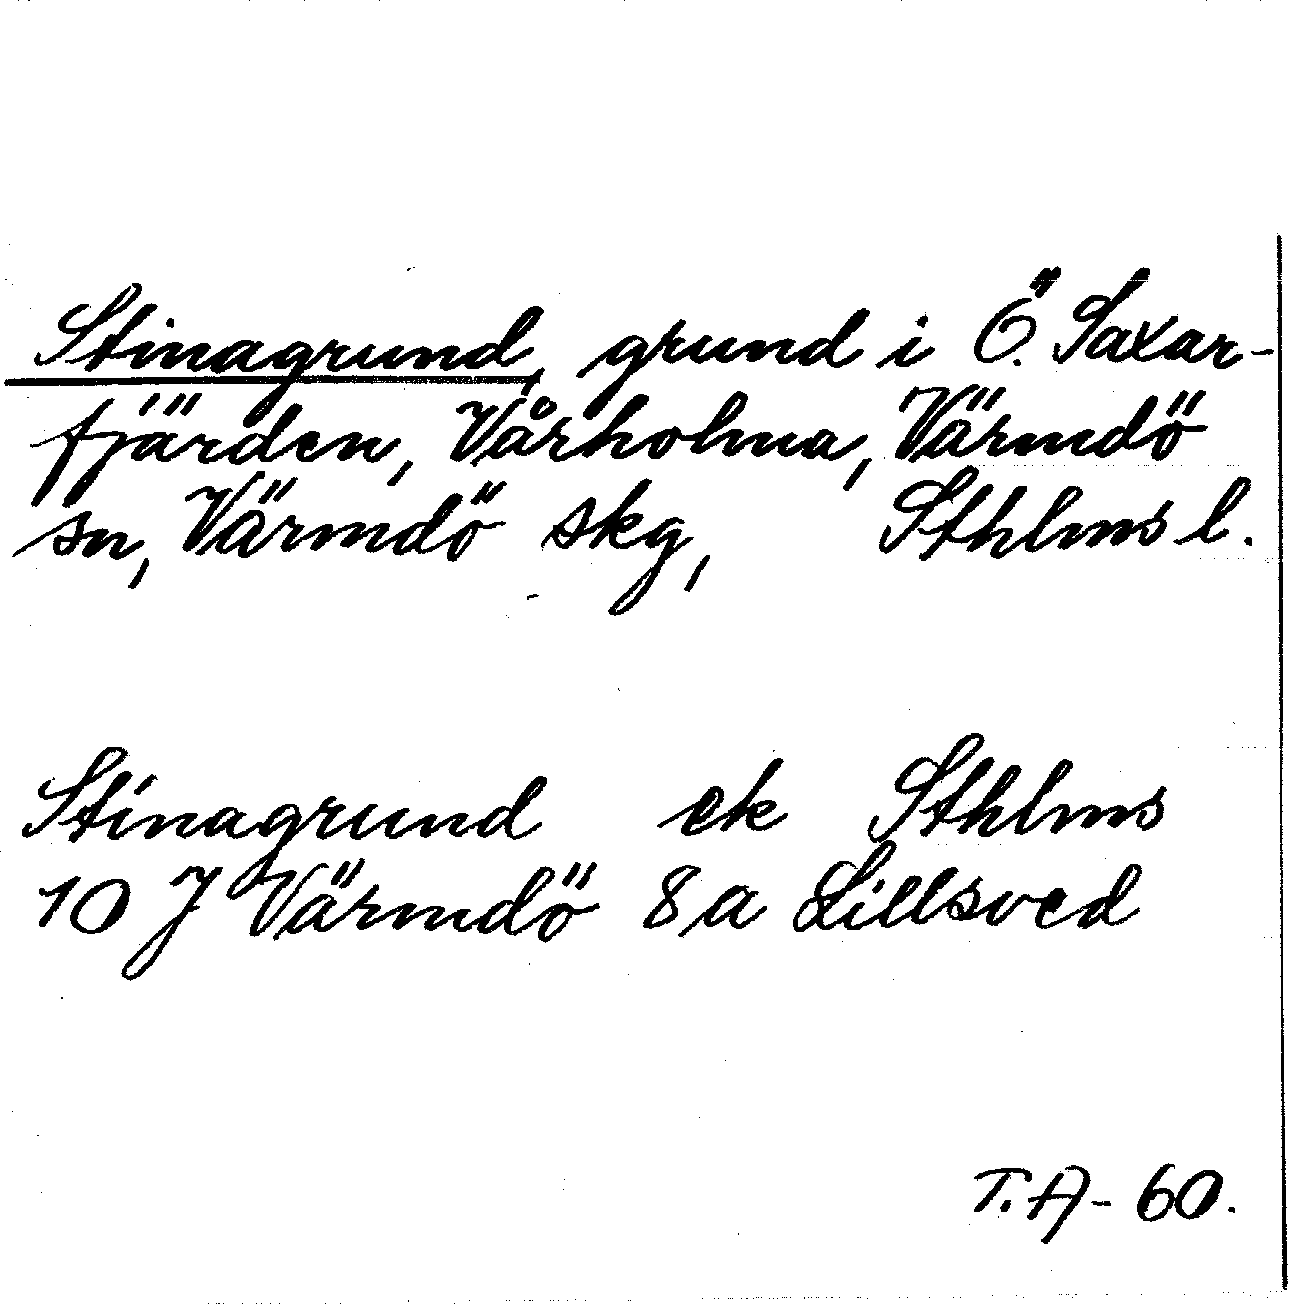 Stinagrund, grund i Ö. Saxar-
fjärden, Vårholma, Värmdö
sn, Värmdö skg, Sthlms l.
Stinagrund ek Sthlms
10 J Värmdö 8 a Lillsved
T. A - 60.